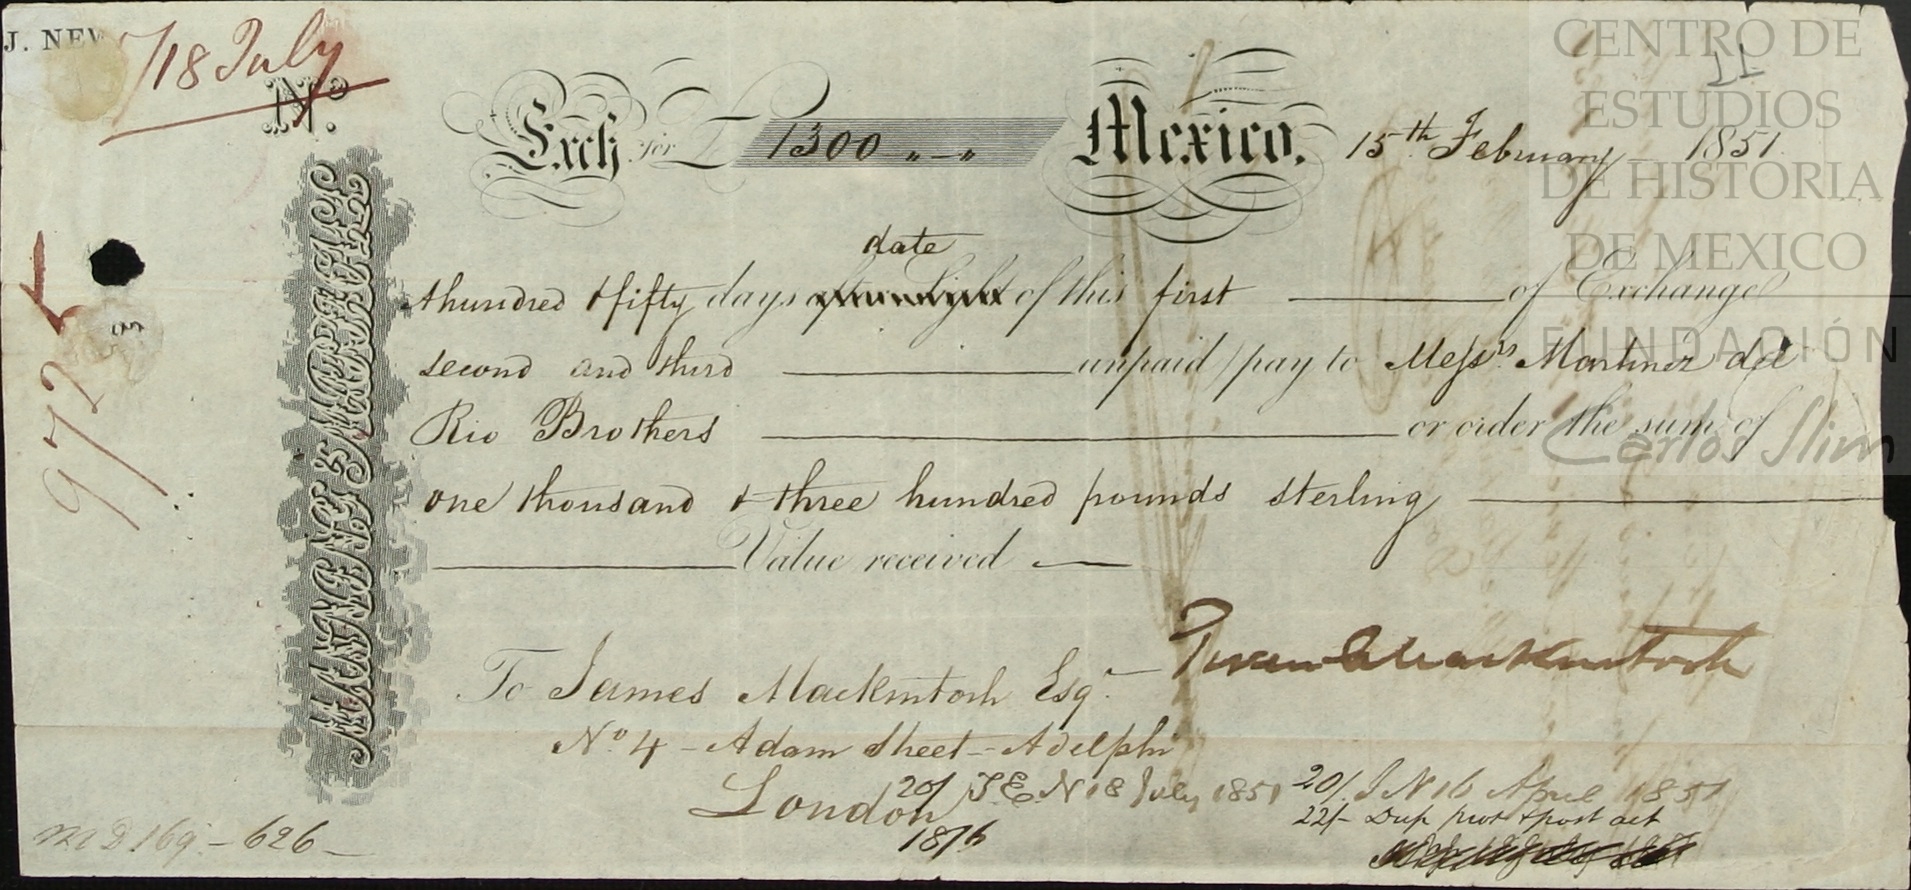 J. NEW
18 July
No.
Exch for £ 1300 „ – „ Mexico. 15th February 1851.
date
hundred & fifty days after sight of this first of Exchange
second and third unpaid pay to Messrs. Martinez del
Rio Brothers or order the sum of
one thousand & three hundred pounds sterling
Value received
To James Mackintosh Esqr.
No 4 - Adam Street - Adelphi
London
20/ J.E.N 18 July 1851
20/ J N 16 April 1851
22/- Dup prot & post act
18/6
9725
MD 169 - 626 -
11
CENTRO DE
ESTUDIOS
DE HISTORIA
DE MEXICO
FUNDACIÓN
Carlos Slim